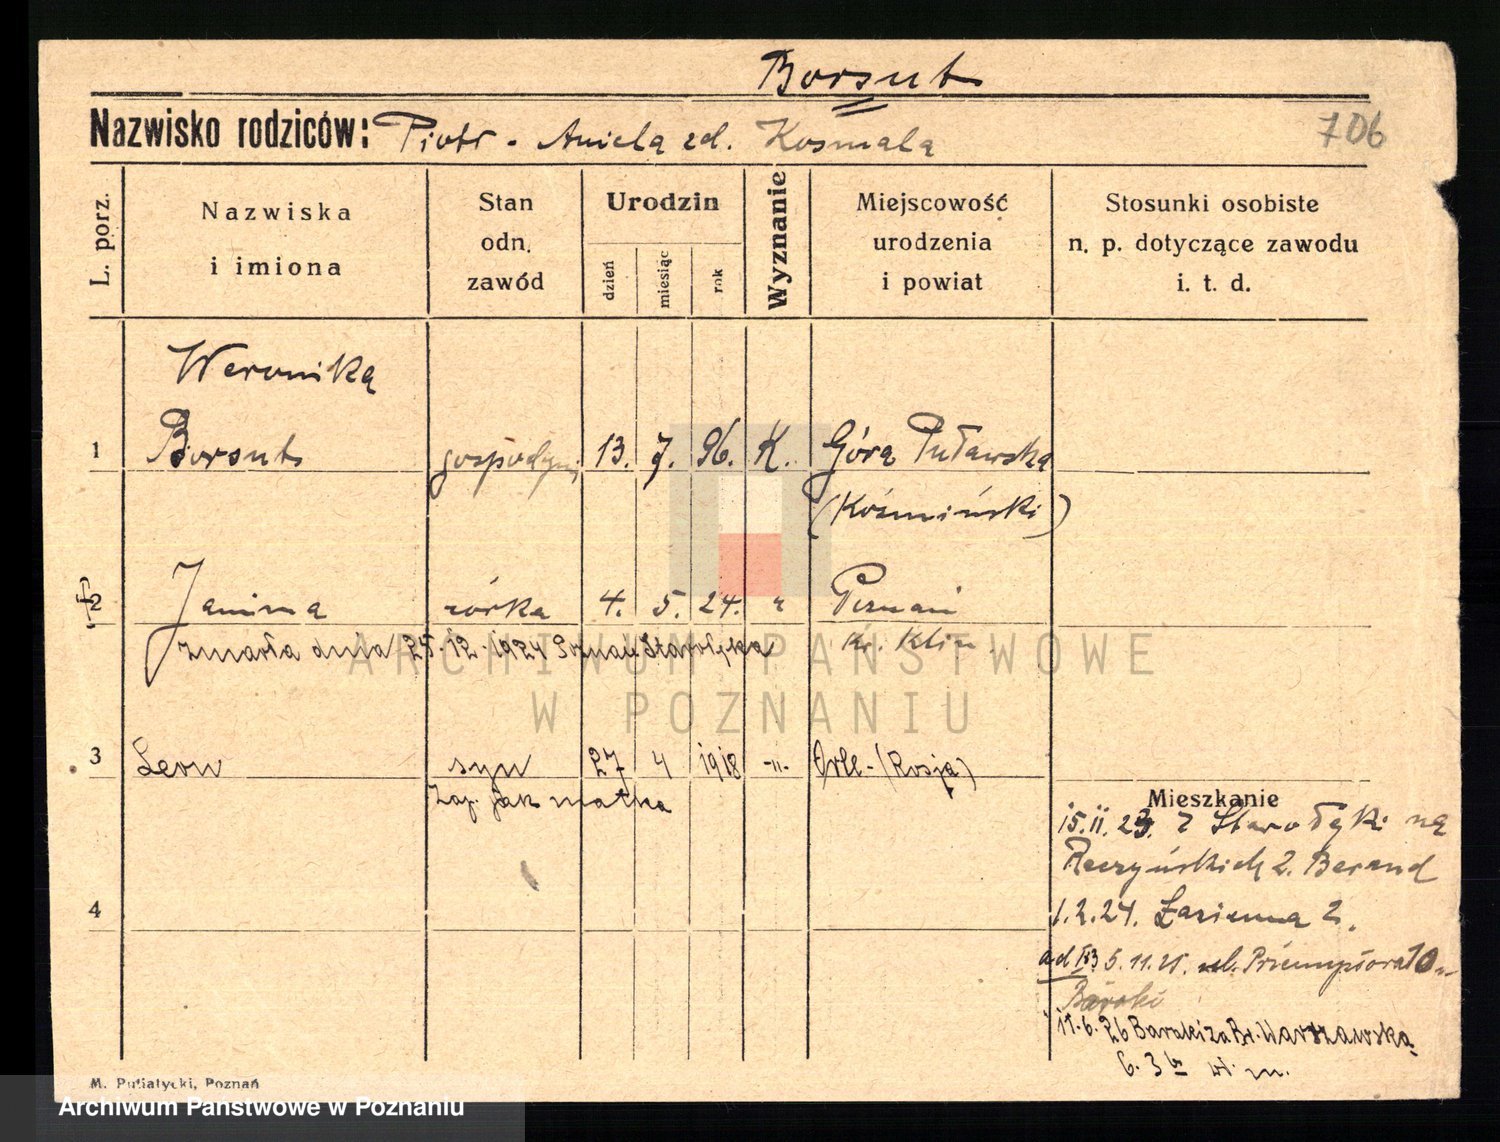 Borsut
Nazwisko rodziców: Piotr - Aniela zd. Kosmala
706
L. porz.
Nazwiska
i imiona
Stan
odn.
zawód
Urodzin
dzień
miesiąc
rok
Wyznanie
Miejscowość
urodzenia
i powiat
Stosunki osobiste
n. p. dotyczące zawodu
i. t. d.
Weronika
1 Borsut gospodyni 13. 7. 96. K. Góra Puławska
(Koźmiński)
2 Janina córka 4. 5. 24. Poznań
zmarła dnia 25.12.1924 Poznań Starołęka
Kr. Klin.
3 Leon syn 27 4 1918 -"- Orłe - (Rosja)
zap. jak matka
Mieszkanie
15.11.23. z Starołęki na
Raczyńskich 2. Berand
4
1.2.24. Łazienna 2.
ad 5.11.25. ul. Przemysłowa 10
Baraki
11.6.26 Baraki za Br. Warszawską
6. 3
ARCHIWUM PAŃSTWOWE
W POZNANIU
M. Putiatycki, Poznań
Archiwum Państwowe w Poznaniu